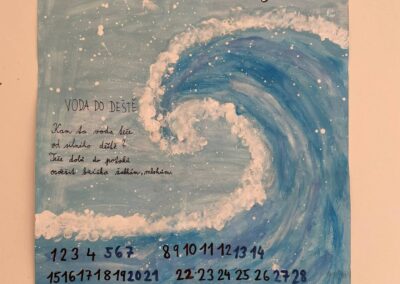 VODA DO DEŠTĚ
Kam ta voda teče
od silného deště?
Teče dolů do potoků
osvěžit bříška žabkám, mlokům.
1 2 3 4 5 6 7 8 9 10 11 12 13 14
15 16 17 18 19 20 21 22 23 24 25 26 27 28